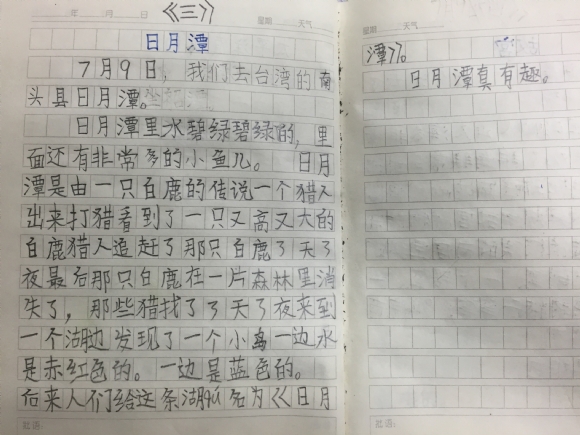 年 月 日 《三》 星期 天气
日月潭
7月9日，我们去台湾的南
头县日月潭。
日月潭里水碧绿碧绿的，里
面还有非常多的小鱼儿。 日月
潭是由一只白鹿的传说一个猎人
出来打猎看到了一只又高又大的
白鹿猎人追赶了那只白鹿3天3
夜最后那只白鹿在一片森林里消
失了，那些猎找了3天3夜来到
一个湖边发现了一个小岛一边水
是赤红色的。一边是蓝色的。
后来人们给这条湖取名为《日月
批语：
年 月 日 星期 天气
潭》。
日月潭真有趣。
批语：